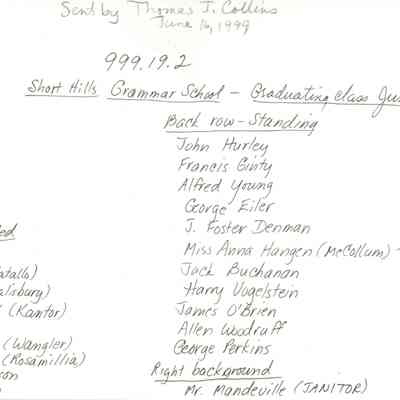 Sent by Thomas J. Collins
June 16, 1999
999.19.2
Short Hills Grammar School - Graduating class Ju
Back row - Standing
John Hurley
Francis Ginty
Alfred Young
George Eiler
J. Foster Denman
Miss Anna Hangen (McCollum) -
Jack Buchanan
Harry Vogelstein
James O'Brien
Allen Woodruff
George Perkins
Right background
Mr. Mandeville (JANITOR)
ted
atallo)
alisbury)
(Kantor)
(Wangler)
(Rosamillia)
son